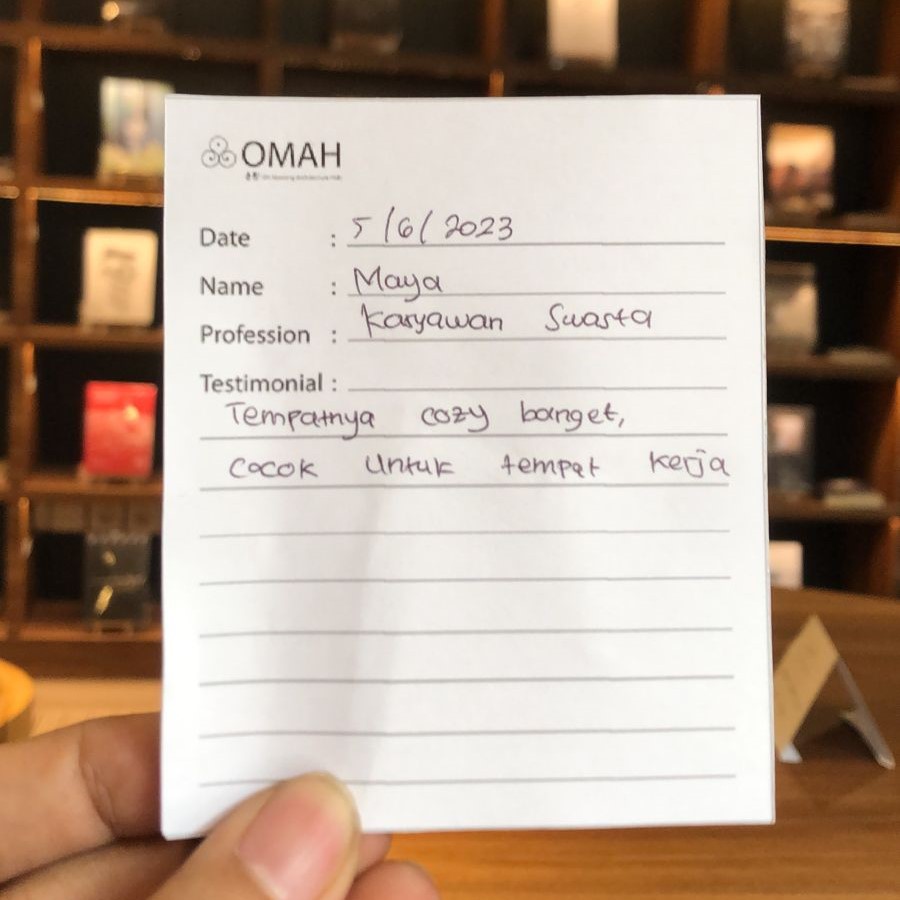 OMAH
Date : 5/6/2023
Name : Maya
Profession : Karyawan Swasta
Testimonial :
Tempatnya cozy banget,
cocok untuk tempat kerja